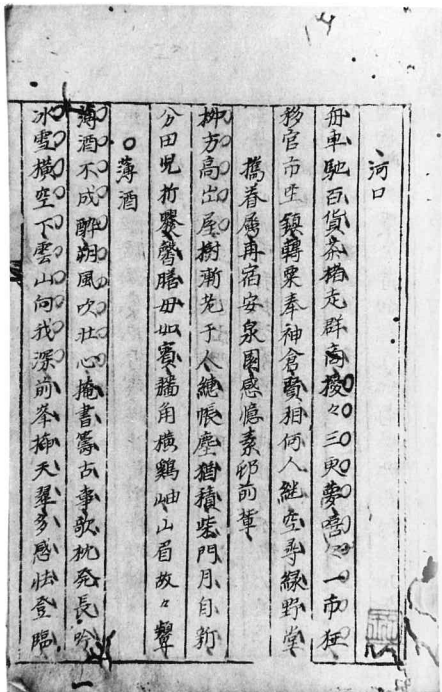 河口
舟車馳百貨茶楮走群商擾々三更夢喧々一市狂
移官市坐鎮轉粟奉神倉費相何人繼空尋綠野堂
攜眷屬再宿安泉園感憶素邨前輩
柳方高出屋樹漸老于人繐帳塵猶積柴門月自新
分田兒析爨馨膳母如賓牆角橫鷄岫山眉故々顰
薄酒
薄酒不成醉朔風吹壯心掩書籌古事欹枕發長吟
冰雪橫空下雲山向我深前峯抑天翠多感怯登臨